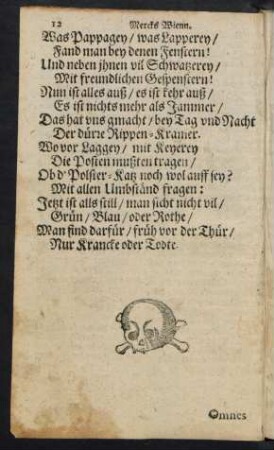 12 Mercks Wienn.
Was Pappagey / was Lapperey /
Fand man bey denen Fenstern!
Und neben jhnen vil Schwatzerey /
Mit freundlichen Gespenstern!
Nun ist alles auß / es ist kehr auß /
Es ist nichts mehr als Jammer /
Das hat vns gmacht / bey Tag vnd Nacht
Der dürre Rippen-Kramer.
Wo vor Laggey / mit Keyerey
Die Posten mußten tragen /
Ob d' Polster-Katz noch wol auff sey?
Mit allen Umbständ fragen:
Jetzt ist alls still / man sicht nicht vil /
Grün / Blau / oder Rothe /
Man find darfür / früh vor der Thür /
Nur Krancke oder Todte.
Omnes